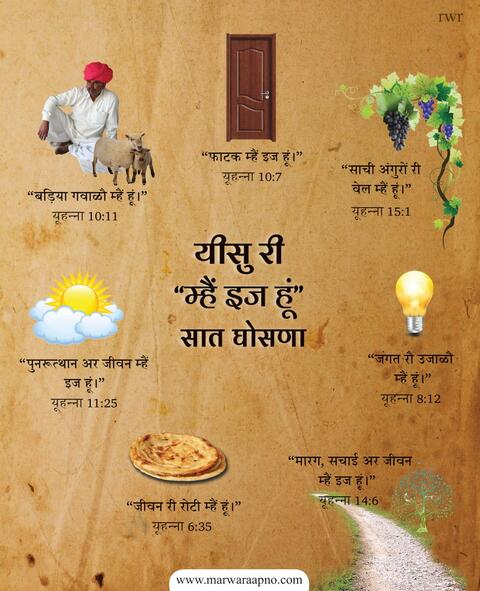 rwr
“फाटक म्हैं इज हूं।”
यूहन्ना 10:7
“साची अंगुरों री
वेल म्हैं हूं।”
यूहन्ना 15:1
“बड़िया गवाळौ म्हैं हूं।”
यूहन्ना 10:11
यीसु री
“म्हैं इज हूं”
सात घोसणा
“पुनरूत्थान अर जीवन म्हैं
इज हूं।”
यूहन्ना 11:25
“जंगत रौ उजाळौ
म्हैं हूं।”
यूहन्ना 8:12
“मारग, सचाई अर जीवन
म्हैं इज हूं।”
यूहन्ना 14:6
“जीवन री रोटी म्हैं हूं।”
यूहन्ना 6:35
www.marwaraapno.com